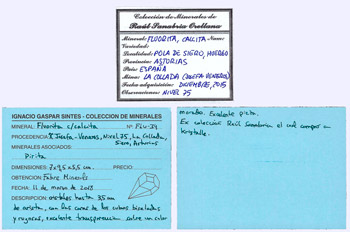 Colección de Minerales de
Raúl Sanabria Orellana
Mineral: FLUORITA, CALCITA Nº:
Variedad:
Localidad: POLA DE SIERO, HUERGO
Provincia: ASTURIAS
País: ESPAÑA
Mina: LA COLLADA (JOSEFA VENEROS)
Fecha adquisición: DICIEMBRE, 2015
Observaciones: NIVEL 75
IGNACIO GASPAR SINTES - COLECCION DE MINERALES
MINERAL: Fluorita c/calcita Nº
PROCEDENCIA: Josefa-Veneros, Nivel 75, La Collada,
Siero, Asturias
MINERALES ASOCIADOS:
Pirita
DIMENSIONES: 7x9,5x5,5 cm. PRECIO:
OBTENCION Fabre Minerals
FECHA: 11 de marzo de
DESCRIPCION: cristales hasta 3,5 cm
de arista, con las caras de los cubos biseladas
y rugosas, excelente transparencia, sobre un color
morado. Excelente pieza.
Ex colección Raúl Sanabria el cual compró a
Kristalle.